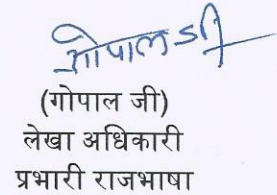 गोपाल जी
(गोपाल जी)
लेखा अधिकारी
प्रभारी राजभाषा